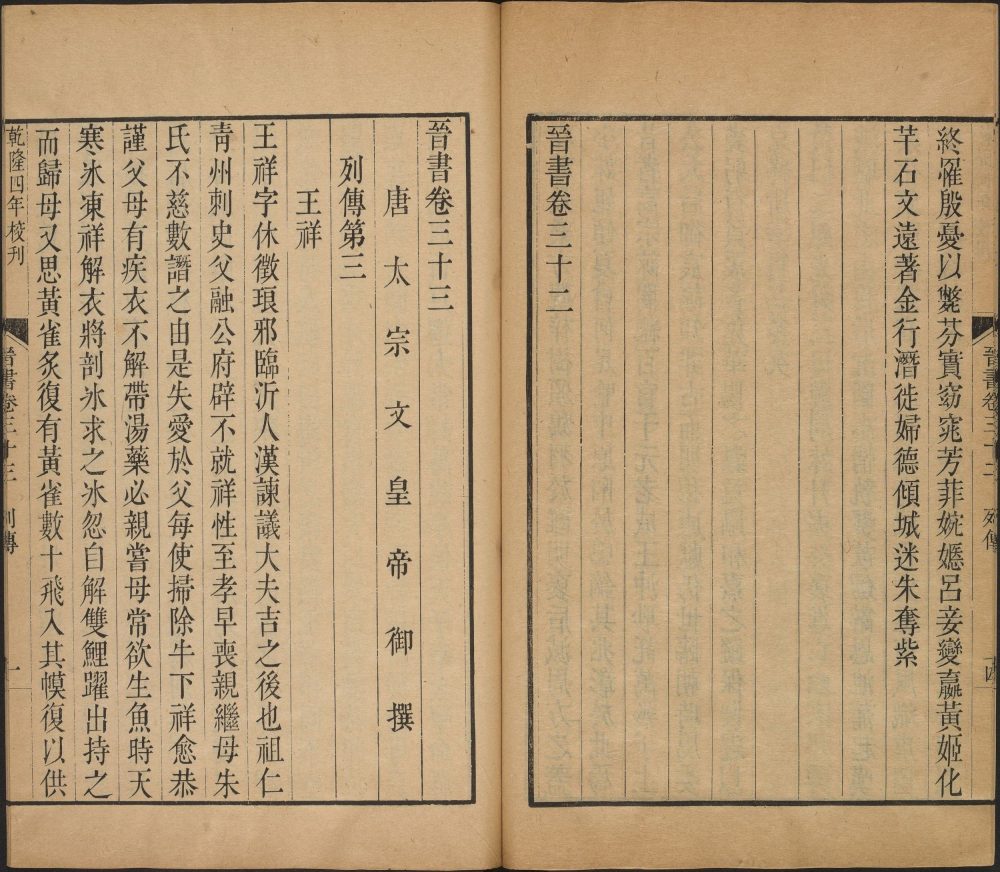 終罹殷憂以斃芬實窈窕芳菲婉嫕呂妾變嬴黃姬化
芊石文遠著金行潛徙婦德傾城迷朱奪紫
晉書卷三十二
晉書卷三十二 列傳 十四
晉書卷三十三
唐太宗文皇帝御撰
列傳第三
王祥
王祥字休徵琅邪臨沂人漢諫議大夫吉之後也祖仁
青州刺史父融公府辟不就祥性至孝早喪親繼母朱
氏不慈數譖之由是失愛於父每使掃除牛下祥愈恭
謹父母有疾衣不解帶湯藥必親嘗母常欲生魚時天
寒氷凍祥解衣將剖氷求之氷忽自解雙鯉躍出持之
而歸母又思黃雀炙復有黃雀數十飛入其幙復以供
乾隆四年校刊
晉書卷三十三 列傳 一